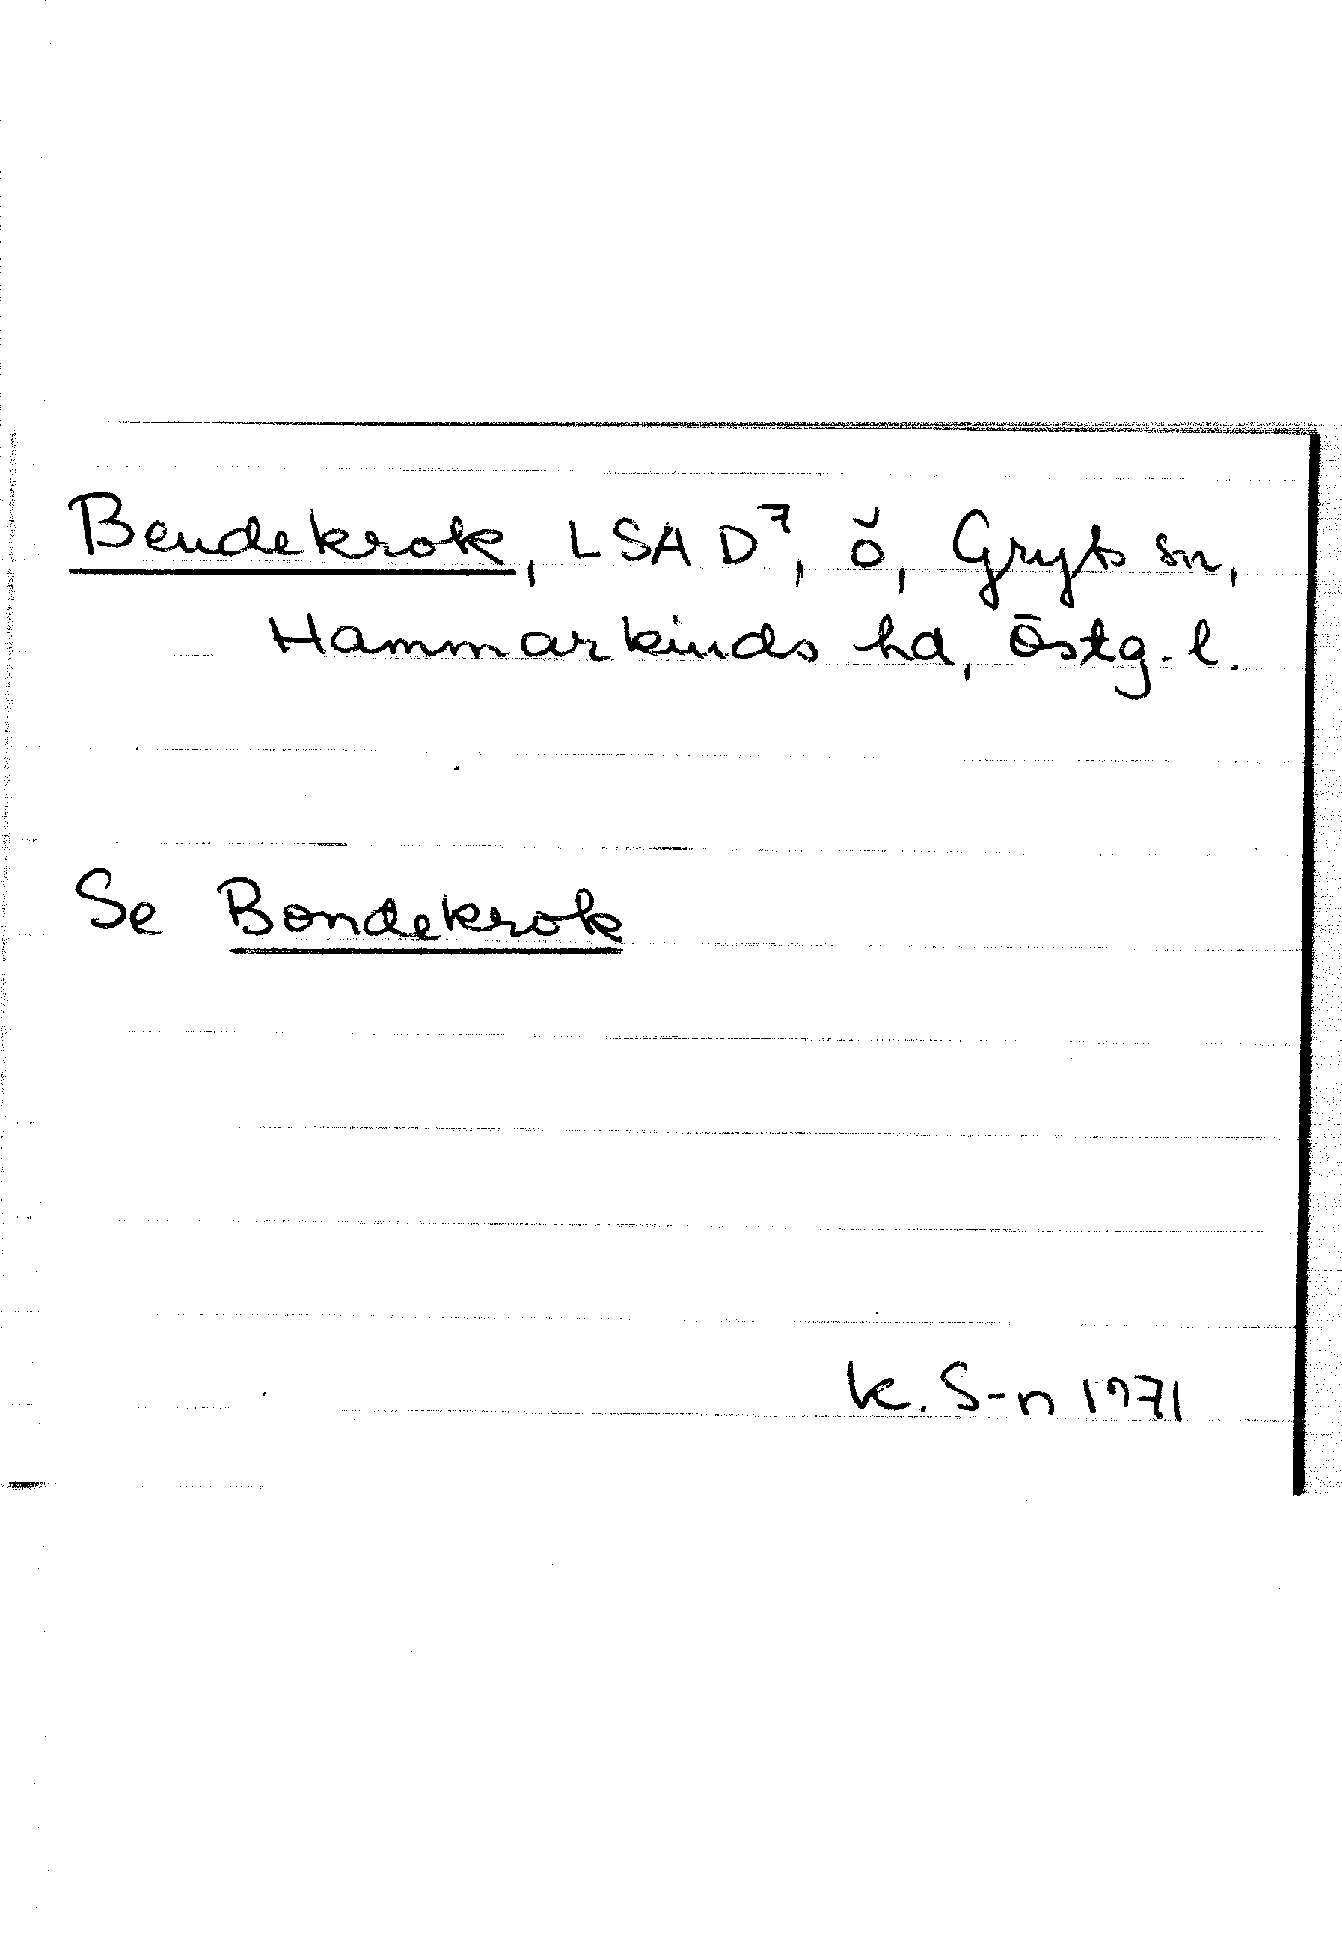 Bendekrok, LSA D⁷, ö, Gryts sn,
Hammarkinds hd, Östg. l.
Se Bondekrok
K. S-n 1971